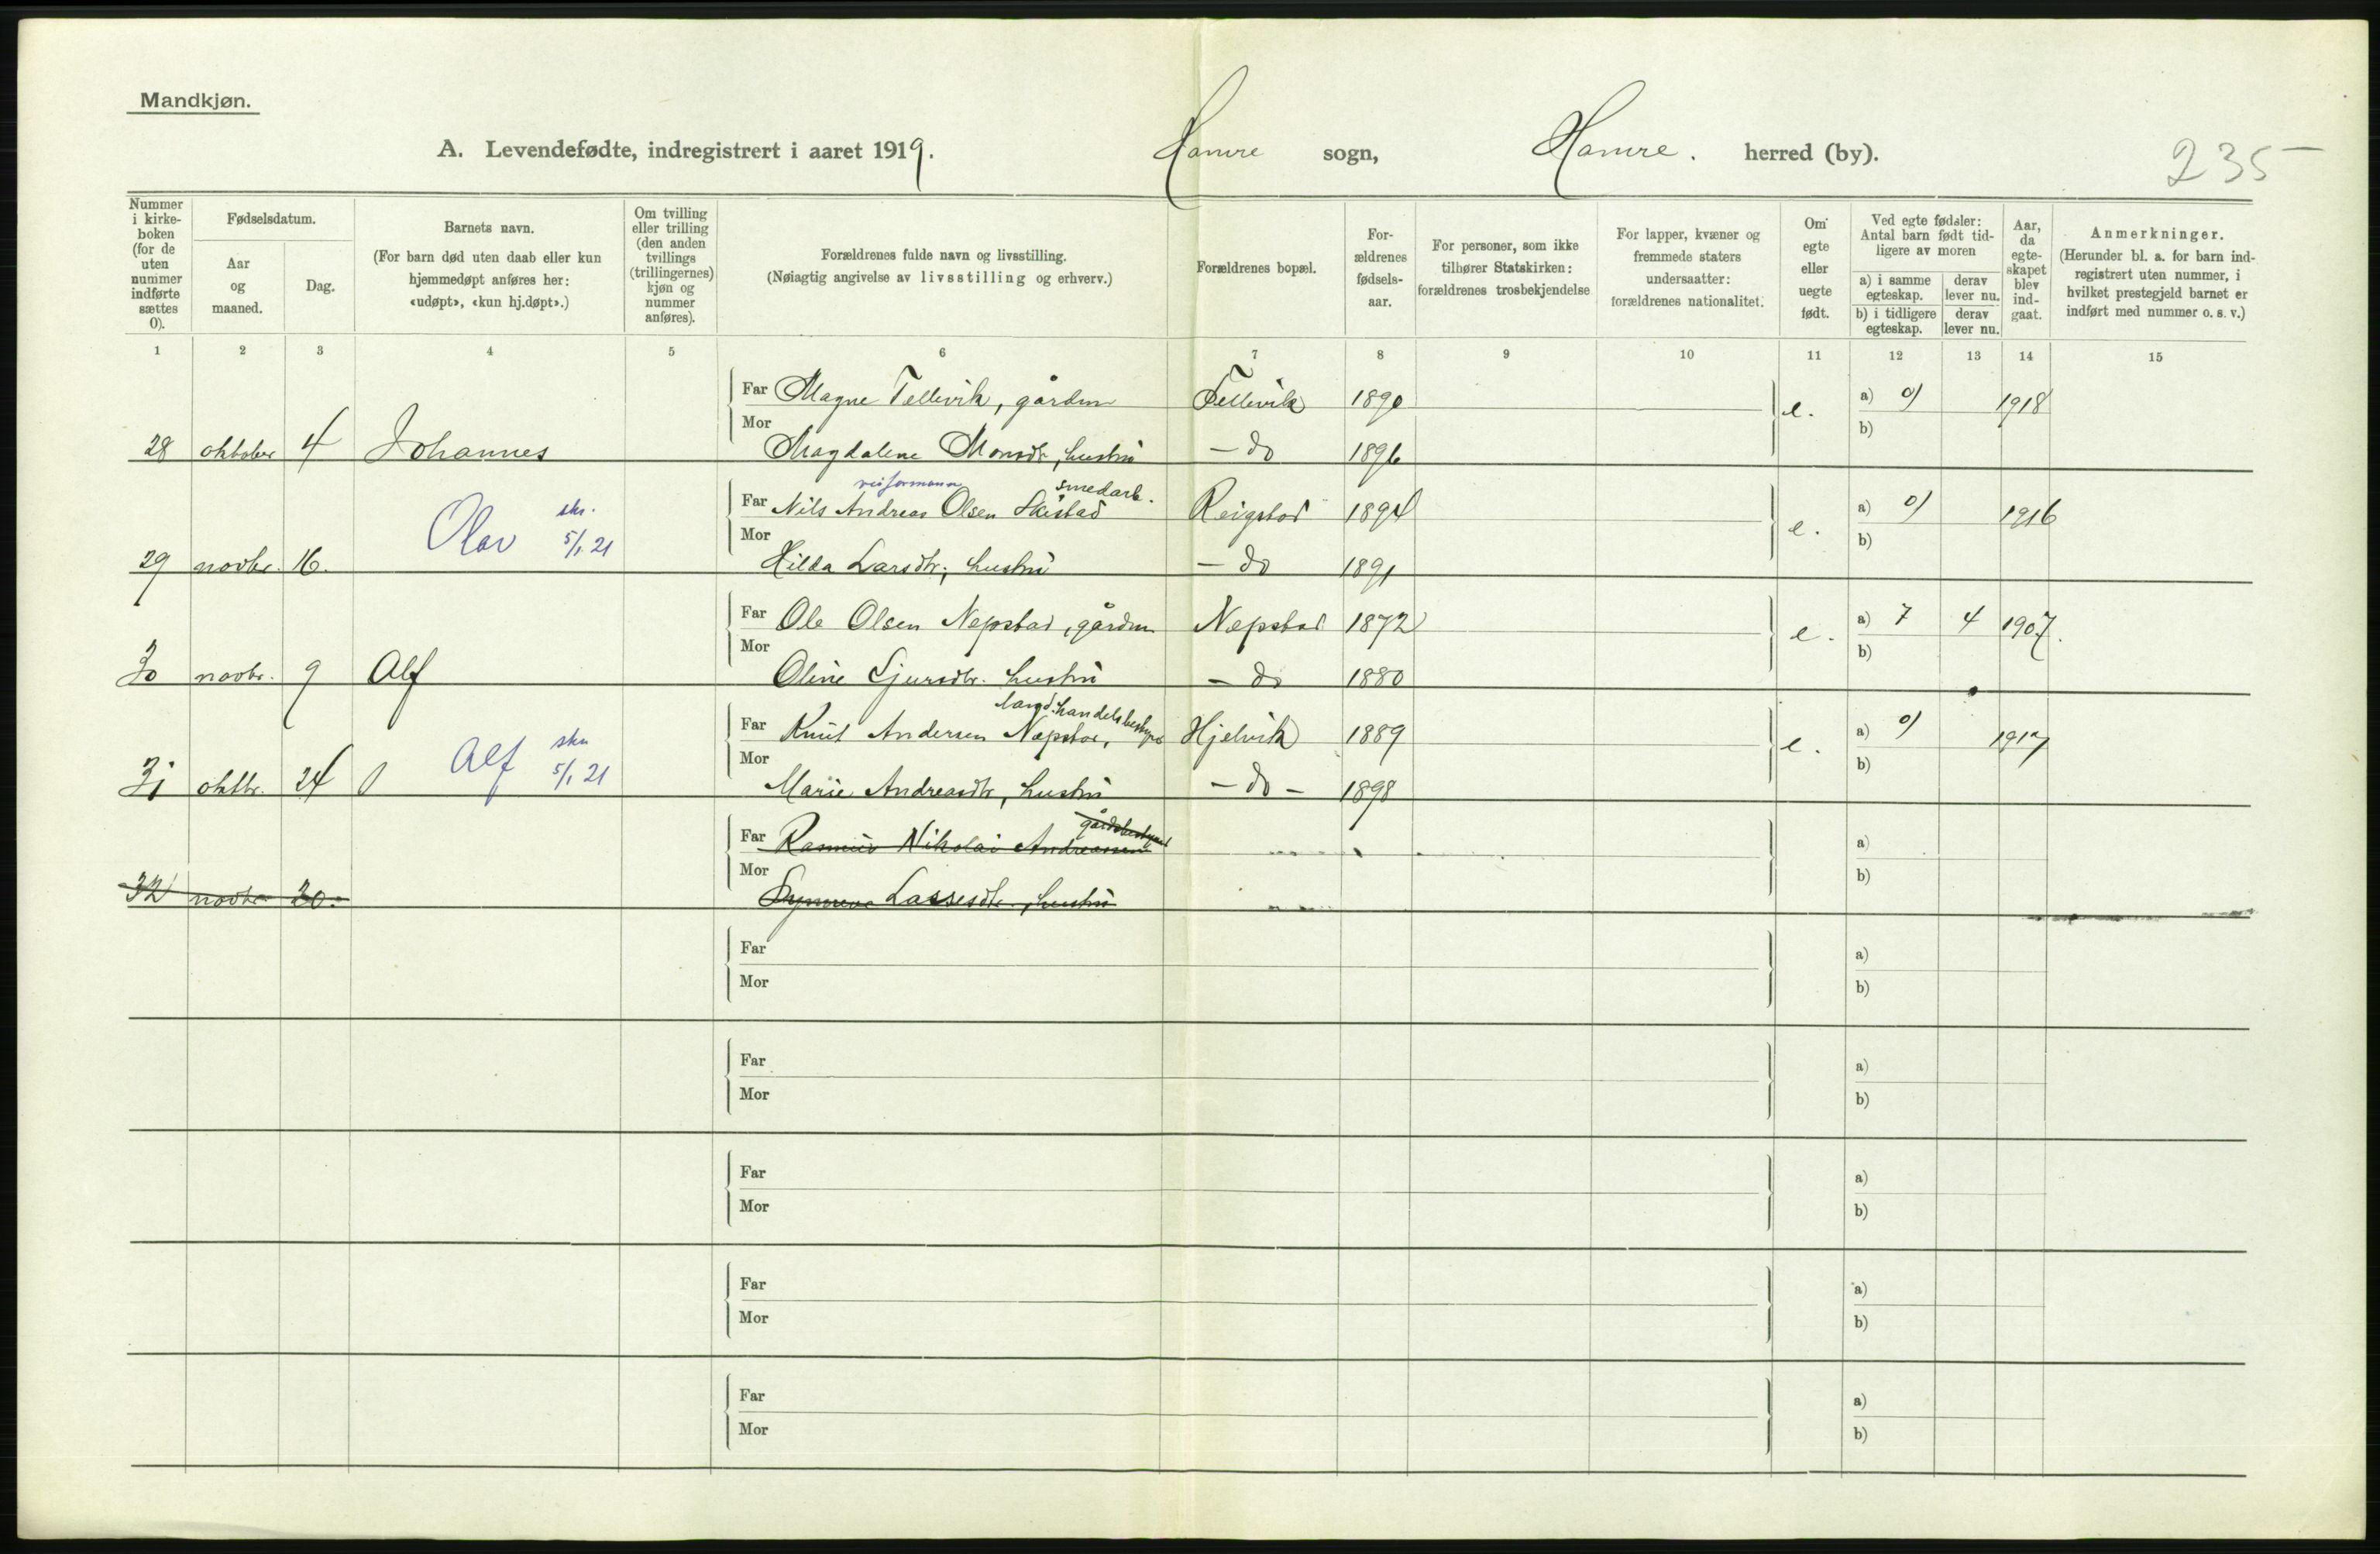 Mandkjøn.
A. Levendefødte, indregistrert i aaret 1919. Hamre sogn, Hamre. herred (by).
235
Nummer i kirke-boken (for de uten nummer indførte sættes 0).
Fødselsdatum.
Aar og maaned.
Dag.
Barnets navn.
(For barn død uten daab eller kun hjemmedøpt anføres her: «udøpt», «kun hj.døpt».)
Om tvilling eller trilling (den anden tvillings (trillingernes) kjøn og nummer anføres).
Forældrenes fulde navn og livsstilling.
(Nøiagtig angivelse av livsstilling og erhverv.)
Forældrenes bopæl.
For-ældrenes fødsels-aar.
For personer, som ikke tilhører Statskirken: forældrenes trosbekjendelse
For lapper, kvæner og fremmede staters undersaatter: forældrenes nationalitet.
Om egte eller uegte født.
Ved egte fødsler: Antal barn født tid-ligere av moren
a) i samme egteskap.
derav lever nu.
b) i tidligere egteskap.
derav lever nu.
Aar, da egte-skapet blev ind-gaat.
Anmerkninger.
(Herunder bl. a. for barn ind-registrert uten nummer, i hvilket prestegjeld barnet er indført med nummer o. s. v.)
1 2 3 4 5 6 7 8 9 10 11 12 13 14 15
Far Magne Tellevik, gårdm Tellevik 1890 e. a) 0) 1918
Mor b)
28 oktober 4 Johannes Magdalene Monsdtr, hustru – do 1896
veiformann smedarb.
Far Nils Andreas Olsen Skistad Reigstad 1894 e. a) 0) 1916
Olav skr. 5/1 21
Mor b)
29 novbr. 16. Hilda Larsdtr, hustru – do 1891
Far Ole Olsen Nepstad, gårdm Nepstad 1872 e. a) 7 4 1907.
Mor b)
30 novbr. 9 Alf Oline Sjursdtr. hustru – do 1880
landhandelsbestyrer
Far Knut Andersen Nepstad, Hjelvik 1889 e. a) 0) 1917
Alf skr 5/1 21
Mor b)
31 oktbr. 24 Marie Andreasdtr, hustru – do – 1898
gårdsbestyrer
Far Rasmus Nikolai Andreassen a)
Mor b)
32 novbr 20. Synneva Lassesdtr, hustru
Far a)
Mor b)
Far a)
Mor b)
Far a)
Mor b)
Far a)
Mor b)
Far a)
Mor b)